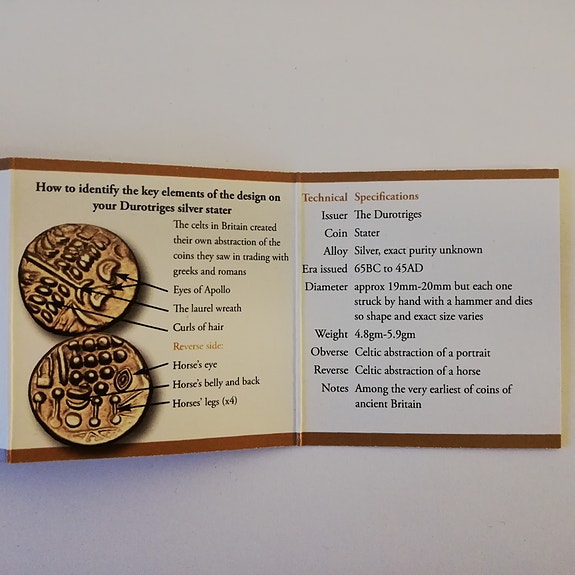 How to identify the key elements of the design on
your Durotriges silver stater
The celts in Britain created
their own abstraction of the
coins they saw in trading with
greeks and romans
Eyes of Apollo
The laurel wreath
Curls of hair
Reverse side:
Horse's eye
Horse's belly and back
Horses' legs (x4)
Technical Specifications
Issuer The Durotriges
Coin Stater
Alloy Silver, exact purity unknown
Era issued 65BC to 45AD
Diameter approx 19mm-20mm but each one
struck by hand with a hammer and dies
so shape and exact size varies
Weight 4.8gm-5.9gm
Obverse Celtic abstraction of a portrait
Reverse Celtic abstraction of a horse
Notes Among the very earliest of coins of
ancient Britain